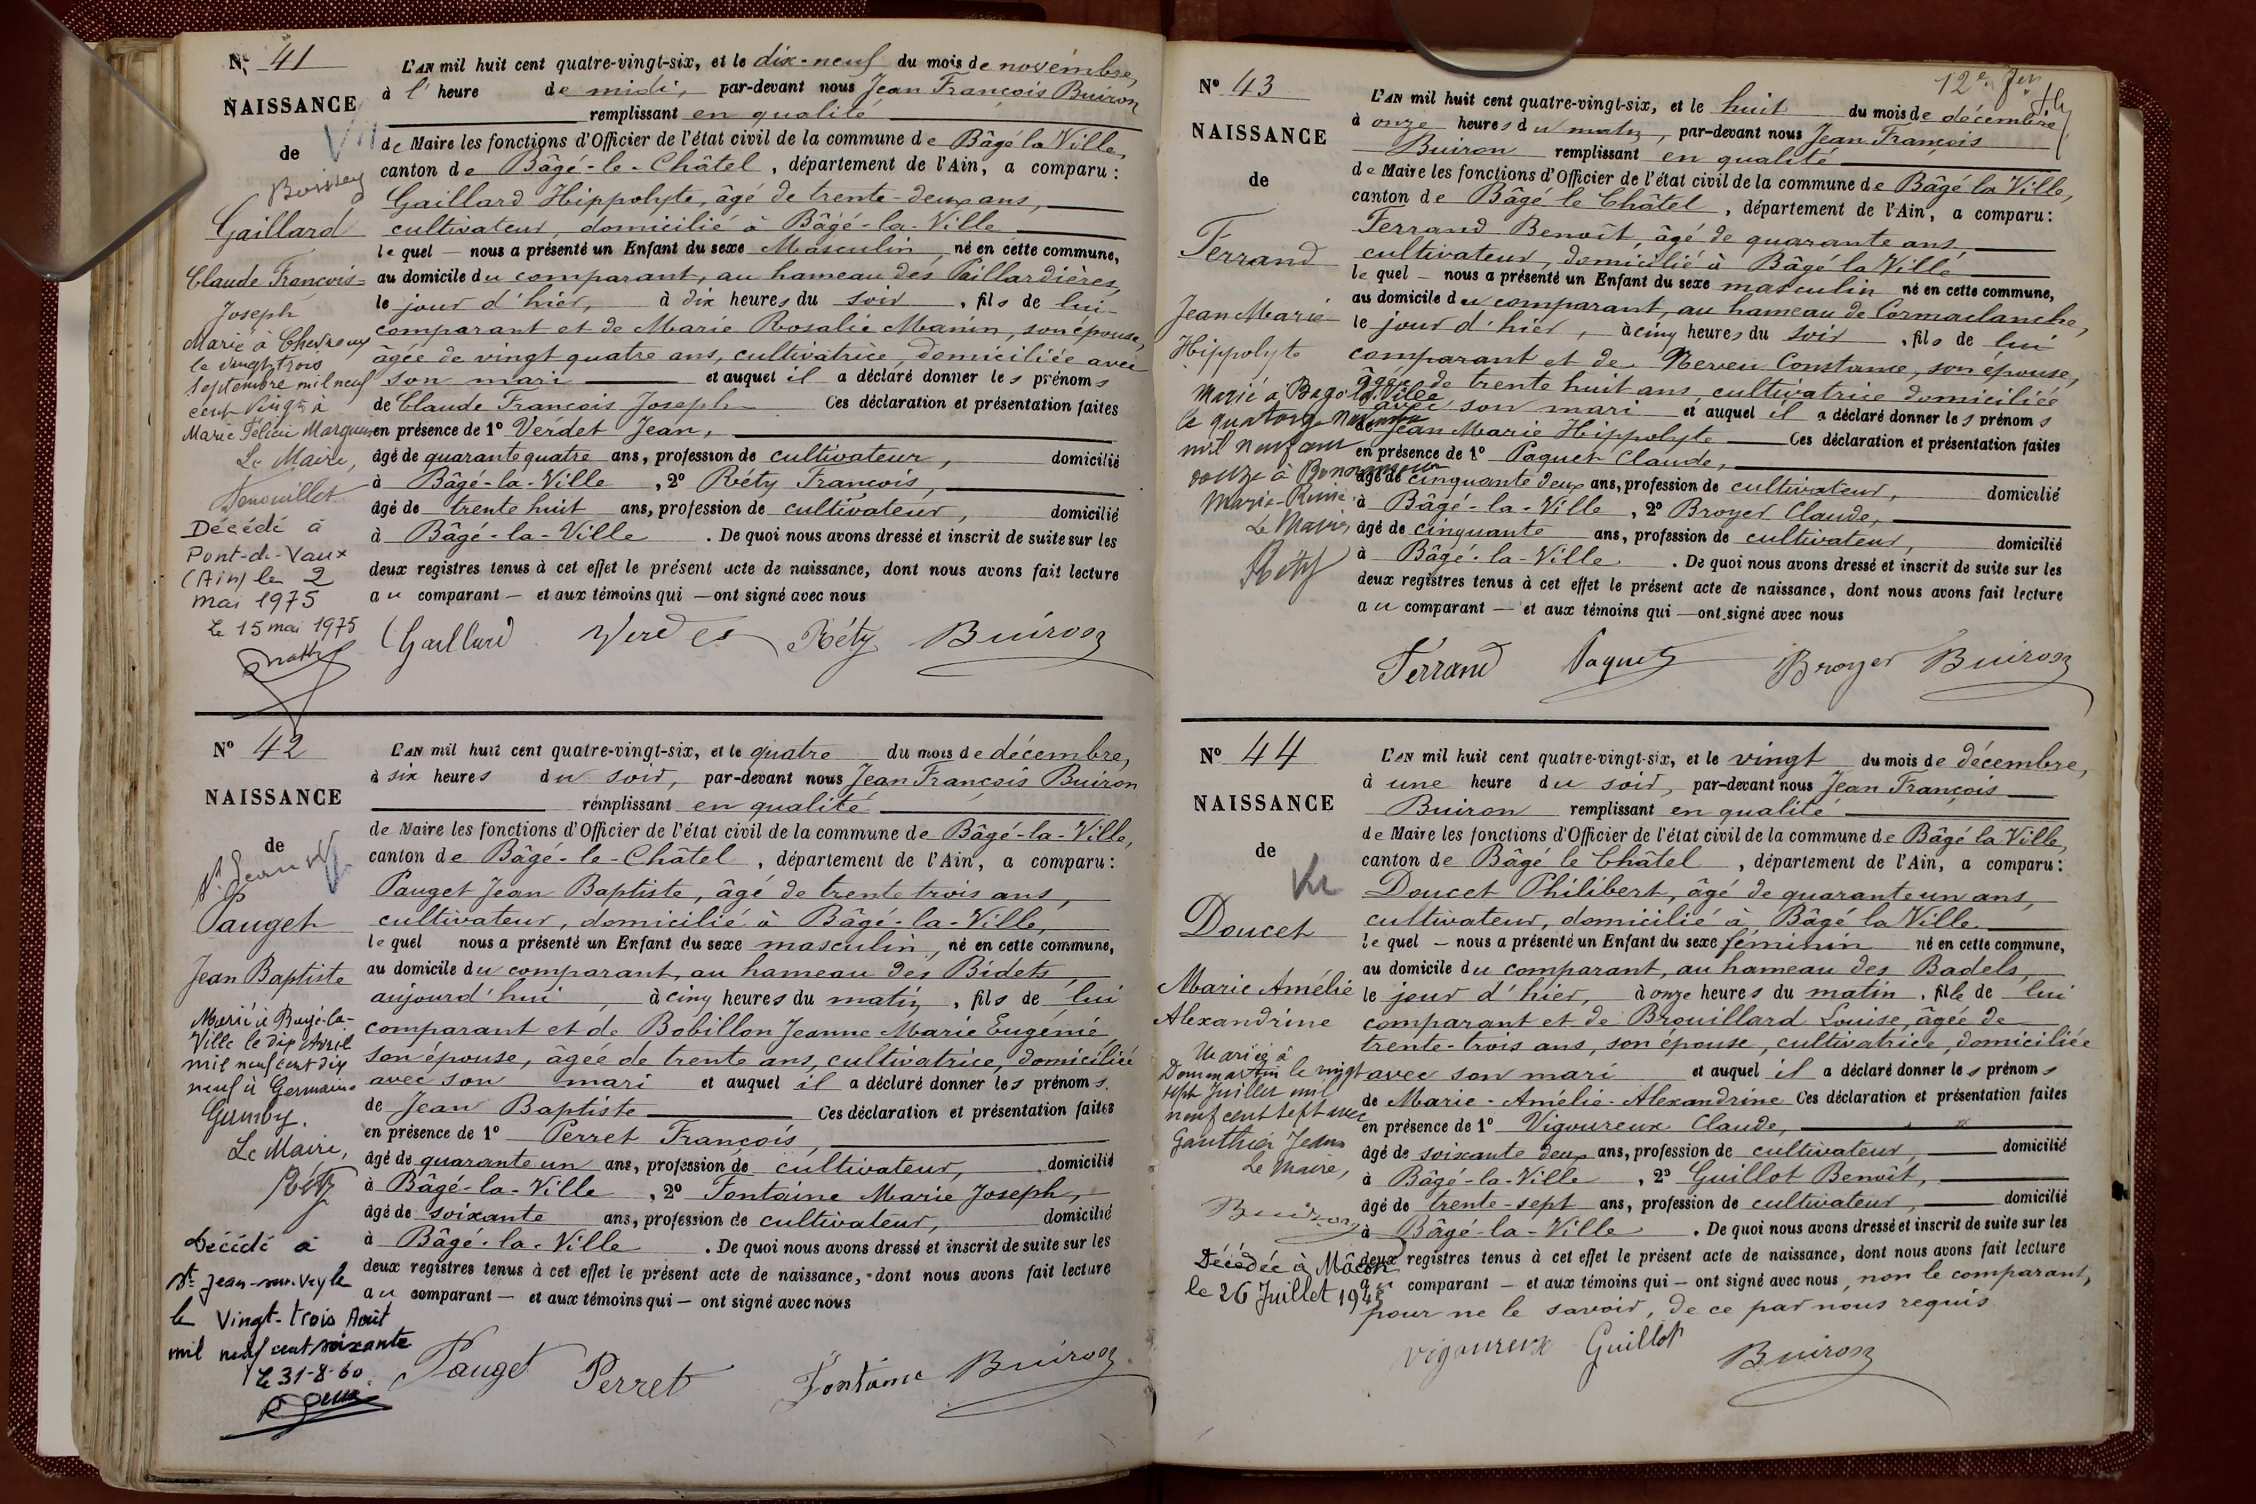 Nº 41
NAISSANCE
de
Boissey
Gaillard
Claude François-
Joseph
Marié à Chevroux
le vingt trois
septembre mil neuf
cent vingt à
Marie Félicie
Le Maire,
Décédé à
Pont-de-Vaux
(Ain) le 2
mai 1975
Le 15 mai 1975
L'AN mil huit cent quatre-vingt-six, et le dix-neuf du mois de novembre,
à l'heure de midi, par-devant nous Jean François Buiron
remplissant en qualité
de Maire les fonctions d'Officier de l'état civil de la commune de Bâgé la Ville,
canton de Bâgé-le-Châtel, département de l'Ain, a comparu :
Gaillard Hippolyte, âgé de trente-deux ans,
cultivateur, domicilié à Bâgé-la-Ville
le quel — nous a présenté un Enfant du sexe Masculin, né en cette commune,
au domicile du comparant, au hameau des Paillardières,
le jour d'hier, à dix heures du soir, fils de lui-
comparant et de Marie Rosalie Manin, son épouse,
âgée de vingt quatre ans, cultivatrice, domiciliée avec
son mari et auquel il a déclaré donner les prénoms
de Claude François Joseph Ces déclaration et présentation faites
en présence de 1º Verdet Jean,
âgé de quarante quatre ans, profession de cultivateur, domicilié
à Bâgé-la-Ville, 2º Réty François,
âgé de trente huit ans, profession de cultivateur, domicilié
à Bâgé-la-Ville. De quoi nous avons dressé et inscrit de suite sur les
deux registres tenus à cet effet le présent acte de naissance, dont nous avons fait lecture
au comparant — et aux témoins qui — ont signé avec nous
Gaillard Verdet Réty Buiron
Nº 42
NAISSANCE
de
St Jean
Pauget
Jean Baptiste
Marié à Bagé-la-
Ville le dix Avril
mil neuf cent dix
neuf à Germaine
Le Maire,
Réty
Décédé à
St-Jean-sur-Veyle
le Vingt-trois Août
mil neuf cent soixante
Le 31-8-60
L'AN mil huit cent quatre-vingt-six, et le quatre du mois de décembre,
à six heures du soir, par-devant nous Jean François Buiron
remplissant en qualité
de Maire les fonctions d'Officier de l'état civil de la commune de Bâgé-la-Ville,
canton de Bâgé-le-Châtel, département de l'Ain, a comparu :
Pauget Jean Baptiste, âgé de trente trois ans,
cultivateur, domicilié à Bâgé-la-Ville,
le quel nous a présenté un Enfant du sexe masculin, né en cette commune,
au domicile du comparant, au hameau des Bidets,
aujourd'hui, à cinq heures du matin, fils de lui
comparant et de Bobillon Jeanne Marie Eugénie,
son épouse, âgée de trente ans, cultivatrice, domiciliée
avec son mari et auquel il a déclaré donner les prénoms
de Jean Baptiste Ces déclaration et présentation faites
en présence de 1º Perret François,
âgé de quarante un ans, profession de cultivateur, domicilié
à Bâgé-la-Ville, 2º Fontaine Marie Joseph,
âgé de soixante ans, profession de cultivateur, domicilié
à Bâgé-la-Ville. De quoi nous avons dressé et inscrit de suite sur les
deux registres tenus à cet effet le présent acte de naissance, dont nous avons fait lecture
au comparant — et aux témoins qui — ont signé avec nous
Pauget Perret Fontaine Buiron
12e
Nº 43
NAISSANCE
de
Ferrand
Jean Marie
Hippolyte
Marié à Bagé la Ville
le quatorze Novembre
mil neuf cent
douze à
Marie-
Le Maire,
Réty
L'AN mil huit cent quatre-vingt-six, et le huit du mois de décembre
à onze heures du matin, par-devant nous Jean François
Buiron remplissant en qualité
de Maire les fonctions d'Officier de l'état civil de la commune de Bâgé la Ville,
canton de Bâgé le Châtel, département de l'Ain, a comparu :
Ferrand Benoît, âgé de quarante ans,
cultivateur, domicilié à Bâgé la Ville
le quel — nous a présenté un Enfant du sexe masculin né en cette commune,
au domicile du comparant, au hameau de Cormaclanche,
le jour d'hier, à cinq heures du soir, fils de lui
comparant et de Neveu Constance, son épouse,
âgée de trente huit ans, cultivatrice domiciliée
avec son mari et auquel il a déclaré donner les prénoms
de Jean Marie Hippolyte Ces déclaration et présentation faites
en présence de 1º Paquet Claude,
âgé de cinquante deux ans, profession de cultivateur, domicilié
à Bâgé-la-Ville, 2º Broyer Claude,
âgé de cinquante ans, profession de cultivateur, domicilié
à Bâgé-la-Ville. De quoi nous avons dressé et inscrit de suite sur les
deux registres tenus à cet effet le présent acte de naissance, dont nous avons fait lecture
au comparant — et aux témoins qui — ont signé avec nous
Ferrand Paquet Broyer Buiron
Nº 44
NAISSANCE
de
Doucet
Marie Amélie
Alexandrine
Mariée à
Dommartin le vingt
sept Juillet mil
neuf cent sept avec
Gauthier Jean
Le Maire,
Buiron
Décédée à Mâcon
le 26 Juillet
L'AN mil huit cent quatre-vingt-six, et le vingt du mois de décembre,
à une heure du soir, par-devant nous Jean François
Buiron remplissant en qualité
de Maire les fonctions d'Officier de l'état civil de la commune de Bâgé la Ville,
canton de Bâgé le Châtel, département de l'Ain, a comparu :
Doucet Philibert, âgé de quarante un ans,
cultivateur, domicilié à Bâgé la Ville
le quel — nous a présenté un Enfant du sexe féminin né en cette commune,
au domicile du comparant, au hameau des Badels,
le jour d'hier, à onze heures du matin, fille de lui
comparant et de Brouillard Louise, âgée de
trente-trois ans, son épouse, cultivatrice, domiciliée
avec son mari et auquel il a déclaré donner les prénoms
de Marie-Amélie-Alexandrine Ces déclaration et présentation faites
en présence de 1º Vigoureux Claude,
âgé de soixante deux ans, profession de cultivateur, domicilié
à Bâgé-la-Ville, 2º Guillot Benoît,
âgé de trente-sept ans, profession de cultivateur, domicilié
à Bâgé-la-Ville. De quoi nous avons dressé et inscrit de suite sur les
deux registres tenus à cet effet le présent acte de naissance, dont nous avons fait lecture
au comparant — et aux témoins qui — ont signé avec nous, non le comparant,
pour ne le savoir, de ce par nous requis
Vigoureux Guillot Buiron